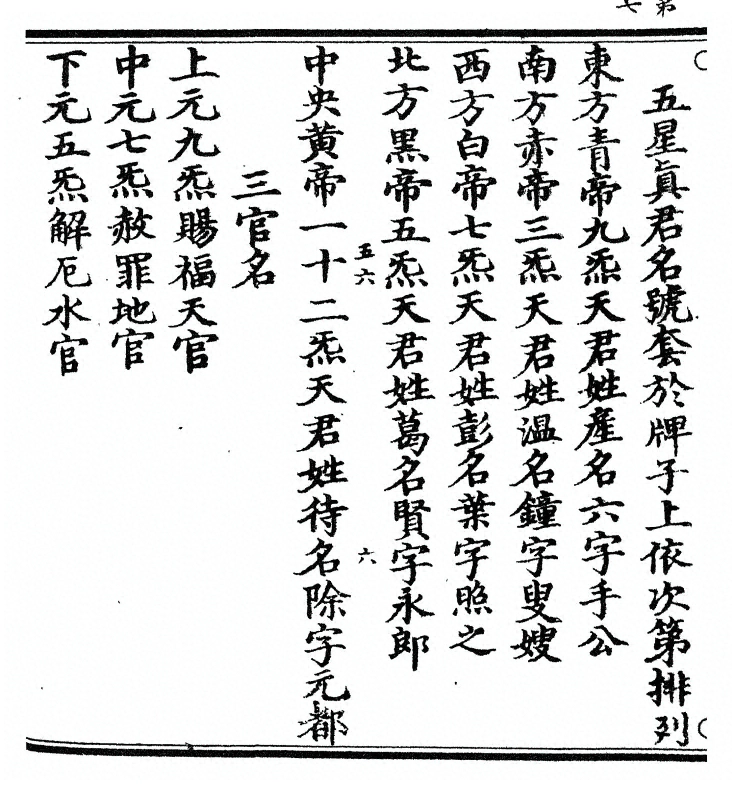 第
七
五星眞君名號套於牌子上依次第排列
東方青帝九炁天君姓產名六字手公
南方赤帝三炁天君姓温名鐘字叟嫂
西方白帝七炁天君姓彭名葉字照之
北方黑帝五炁天君姓葛名賢字永郎
五六
六
中央黄帝一十二炁天君姓待名除字元都
三官名
上元九炁賜福天官
中元七炁赦罪地官
下元五炁解厄水官